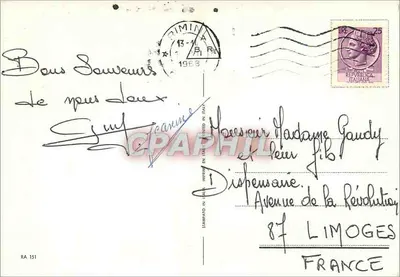 RIMINI
13-
B R
1968
25
Bons Souvenirs
de nous deux
Guy
Jeanine
CPAPHIL
Monsieur Madame Gaudy
et leur fils
Dispensaire.
Avenue de la Révolution
87 LIMOGES
FRANCE
RA 151